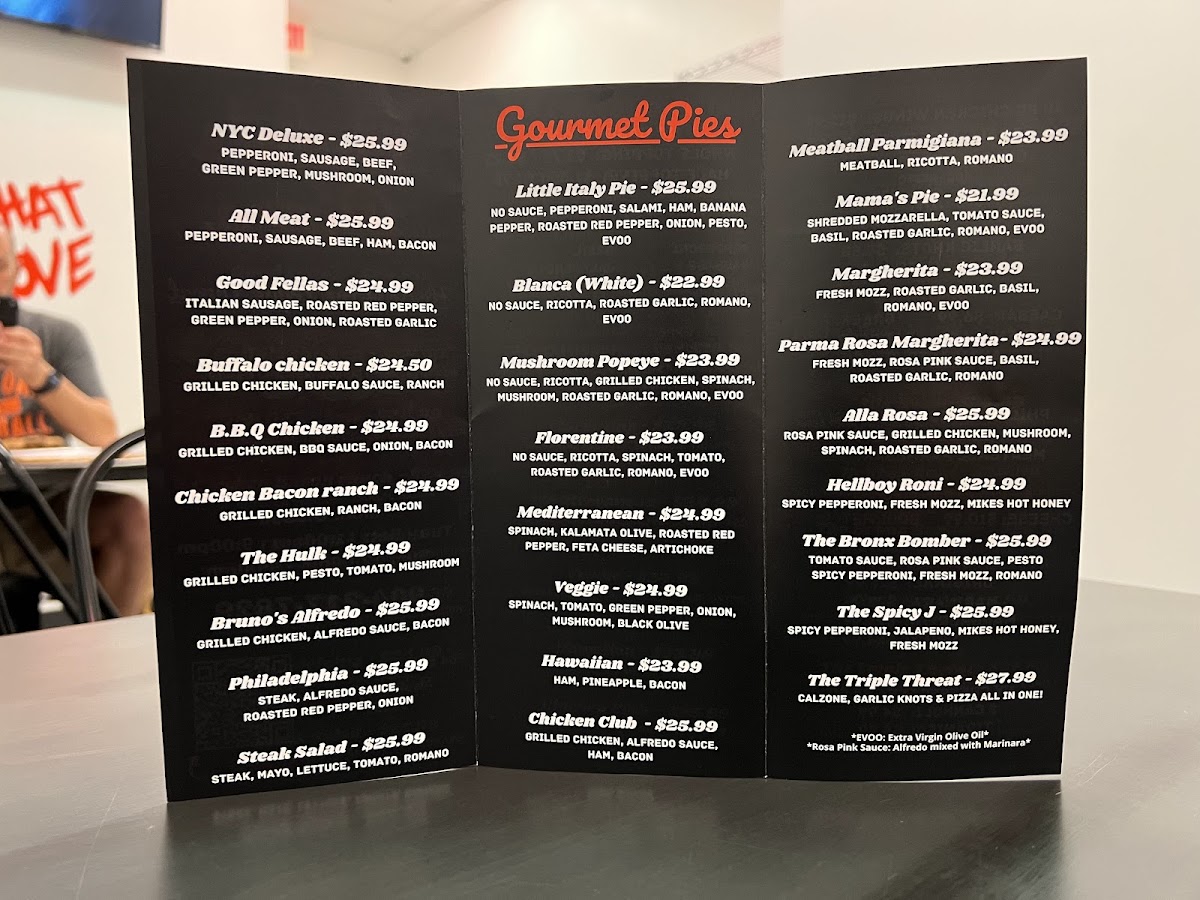 HAT
OVE
NYC Deluxe - $25.99
PEPPERONI, SAUSAGE, BEEF,
GREEN PEPPER, MUSHROOM, ONION
All Meat - $25.99
PEPPERONI, SAUSAGE, BEEF, HAM, BACON
Good Fellas - $24.99
ITALIAN SAUSAGE, ROASTED RED PEPPER,
GREEN PEPPER, ONION, ROASTED GARLIC
Buffalo chicken - $24.50
GRILLED CHICKEN, BUFFALO SAUCE, RANCH
B.B.Q Chicken - $24.99
GRILLED CHICKEN, BBQ SAUCE, ONION, BACON
Chicken Bacon ranch - $24.99
GRILLED CHICKEN, RANCH, BACON
The Hulk - $24.99
GRILLED CHICKEN, PESTO, TOMATO, MUSHROOM
Bruno's Alfredo - $25.99
GRILLED CHICKEN, ALFREDO SAUCE, BACON
Philadelphia - $25.99
STEAK, ALFREDO SAUCE,
ROASTED RED PEPPER, ONION
Steak Salad - $25.99
STEAK, MAYO, LETTUCE, TOMATO, ROMANO
Gourmet Pies
Little Italy Pie - $25.99
NO SAUCE, PEPPERONI, SALAMI, HAM, BANANA
PEPPER, ROASTED RED PEPPER, ONION, PESTO,
EVOO
Blanca (White) - $22.99
NO SAUCE, RICOTTA, ROASTED GARLIC, ROMANO,
EVOO
Mushroom Popeye - $23.99
NO SAUCE, RICOTTA, GRILLED CHICKEN, SPINACH,
MUSHROOM, ROASTED GARLIC, ROMANO, EVOO
Florentine - $23.99
NO SAUCE, RICOTTA, SPINACH, TOMATO,
ROASTED GARLIC, ROMANO, EVOO
Mediterranean - $24.99
SPINACH, KALAMATA OLIVE, ROASTED RED
PEPPER, FETA CHEESE, ARTICHOKE
Veggie - $24.99
SPINACH, TOMATO, GREEN PEPPER, ONION,
MUSHROOM, BLACK OLIVE
Hawaiian - $23.99
HAM, PINEAPPLE, BACON
Chicken Club - $25.99
GRILLED CHICKEN, ALFREDO SAUCE,
HAM, BACON
Meatball Parmigiana - $23.99
MEATBALL, RICOTTA, ROMANO
Mama's Pie - $21.99
SHREDDED MOZZARELLA, TOMATO SAUCE,
BASIL, ROASTED GARLIC, ROMANO, EVOO
Margherita - $23.99
FRESH MOZZ, ROASTED GARLIC, BASIL,
ROMANO, EVOO
Parma Rosa Margherita- $24.99
FRESH MOZZ, ROSA PINK SAUCE, BASIL,
ROASTED GARLIC, ROMANO
Alla Rosa - $25.99
ROSA PINK SAUCE, GRILLED CHICKEN, MUSHROOM,
SPINACH, ROASTED GARLIC, ROMANO
Hellboy Roni - $24.99
SPICY PEPPERONI, FRESH MOZZ, MIKES HOT HONEY
The Bronx Bomber - $25.99
TOMATO SAUCE, ROSA PINK SAUCE, PESTO
SPICY PEPPERONI, FRESH MOZZ, ROMANO
The Spicy J - $25.99
SPICY PEPPERONI, JALAPENO, MIKES HOT HONEY,
FRESH MOZZ
The Triple Threat - $27.99
CALZONE, GARLIC KNOTS & PIZZA ALL IN ONE!
*EVOO: Extra Virgin Olive Oil*
*Rosa Pink Sauce: Alfredo mixed with Marinara*